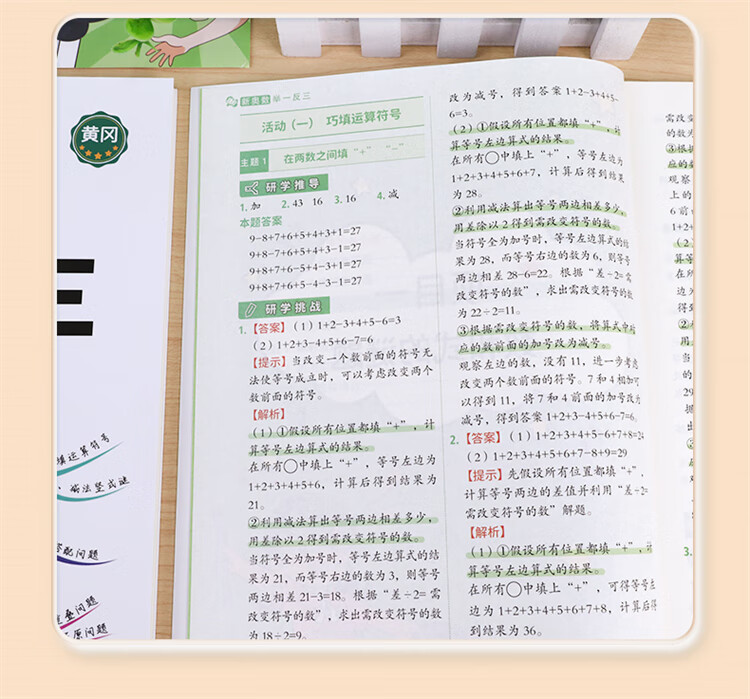 黄冈
新奥数 举一反三
活动（一） 巧填运算符号
主题1 在两数之间填“+”“-”
研学推导
1. 加 2. 43 16 3. 16 4. 减
本题答案
9-8+7+6+5+4+3+1=27
9+8-7+6+5+4+3-1=27
9+8+7-6+5-4+3+1=27
9+8+7+6-5-4-3-1=27
研学挑战
1.【答案】（1）1+2-3+4+5-6=3
（2）1+2+3-4+5+6-7=6
【提示】当改变一个数前面的符号无
法使等号成立时，可以考虑改变两个
数前面的符号。
【解析】
（1）①假设所有位置都填“+”，计
算等号左边算式的结果。
在所有○中填上“+”，等号左边为
1+2+3+4+5+6，计算后得到结果为
21。
②利用减法算出等号两边相差多少，
用差除以2得到需改变符号的数。
当符号全为加号时，等号左边算式的结
果为21，而等号右边的数为3，则等号
两边相差21-3=18。根据“差÷2=需
改变符号的数”，求出需改变符号的数
为18÷2=9。
改为减号，得到答案1+2-3+4+5-
6=3。
（2）①假设所有位置都填“+”，计
算等号左边算式的结果。
在所有○中填上“+”，等号左边为
1+2+3+4+5+6+7，计算后得到结果
为28。
②利用减法算出等号两边相差多少，
用差除以2得到需改变符号的数。
当符号全为加号时，等号左边算式的结
果为28，而等号右边的数为6，则等号
两边相差28-6=22。根据“差÷2=需
改变符号的数”，求出需改变符号的数
为22÷2=11。
③根据需改变符号的数，将算式中对
应的数前面的加号改为减号。
观察左边的数，没有11，进一步考虑
改变两个数前面的符号。7和4相加可
以得到11，将7和4前面的加号改为
减号，得到答案1+2+3-4+5+6-7=6。
2.【答案】（1）1+2+3+4+5-6+7+8=24
（2）1+2+3+4+5+6+7-8+9=29
【提示】先假设所有位置都填“+”，
计算等号两边的差值并利用“差÷2=
需改变符号的数”解题。
【解析】
（1）①假设所有位置都填“+”，计
算等号左边算式的结果。
在所有○中填上“+”，可得等号左
边为1+2+3+4+5+6+7+8，计算后得
到结果为36。
需改变
的数为
③根据
应的数
观察
上的
6前
1+2+
（2）
算等
3.
填运算符号
搭配问题
重叠问题
还原问题